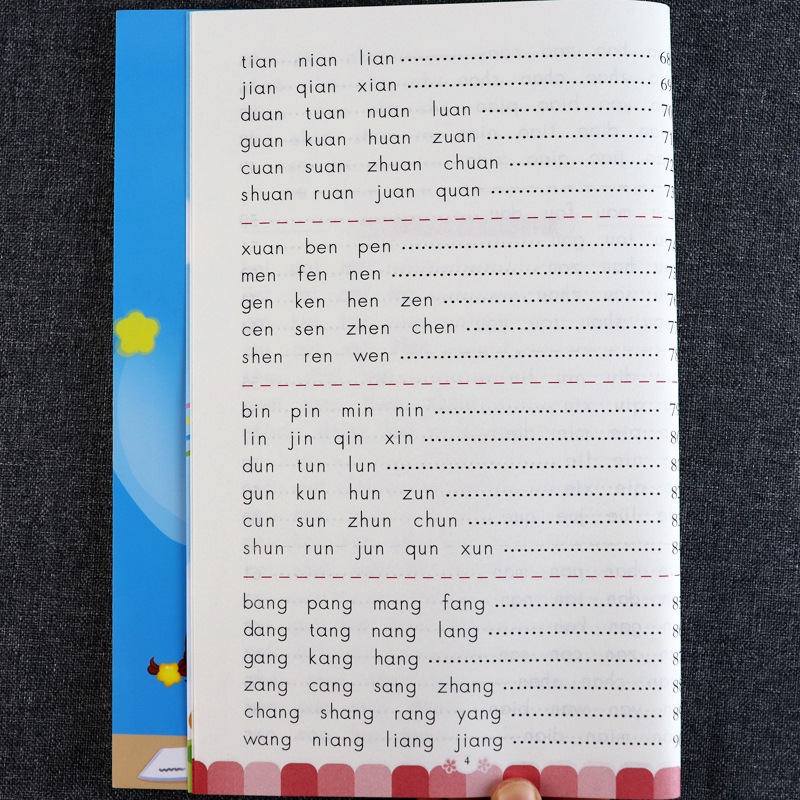 tian nian lian ········ 68
jian qian xian ········ 69
duan tuan nuan luan ········ 70
guan kuan huan zuan ········ 71
cuan suan zhuan chuan ········ 72
shuan ruan juan quan ········ 73
xuan ben pen ········ 74
men fen nen ········ 75
gen ken hen zen ········ 76
cen sen zhen chen ········ 77
shen ren wen ········ 78
bin pin min nin ········ 79
lin jin qin xin ········ 8
dun tun lun ········ 8
gun kun hun zun ········ 8
cun sun zhun chun ········ 8
shun run jun qun xun ········ 8
bang pang mang fang ········ 8
dang tang nang lang ········ 8
gang kang hang ········ 8
zang cang sang zhang ········ 8
chang shang rang yang ········ 8
wang niang liang jiang ········ 9
4